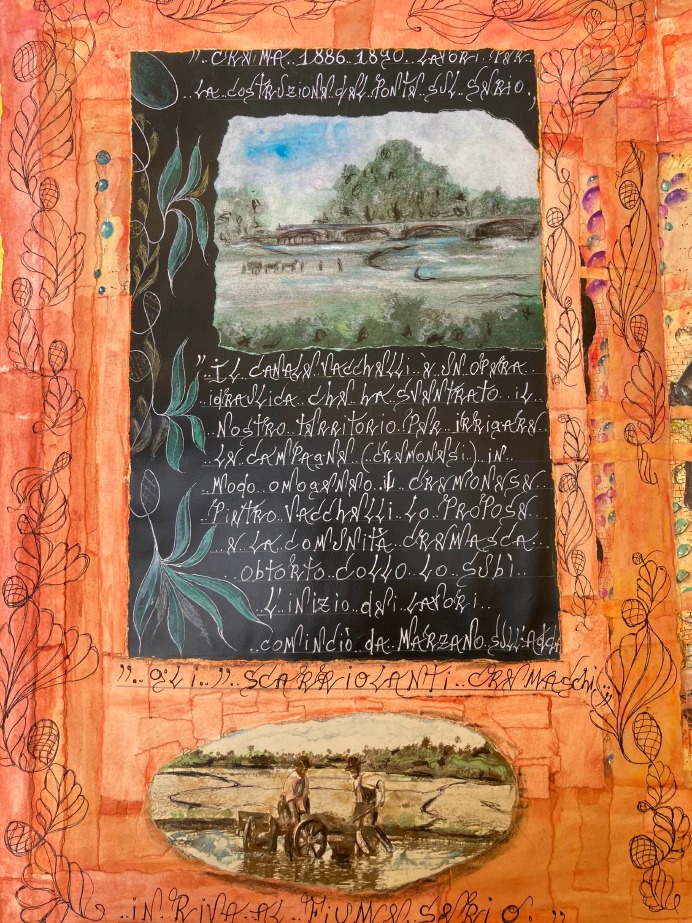 ".. CREMA 1886.1890 LAVORI PER
..LA COSTRUZIONE DEL PONTE SUL SERIO,,
"..IL CANALE VACCHELLI È UN OPERA..
IDRAULICA CHE HA SVENTRATO IL..
NOSTRO TERRITORIO PER IRRIGARE
..LE CAMPAGNE (CREMONESI) IN..
MODO OMOGENEO. IL CREMONESE
PIETRO VACCHELLI LO PROPOSE
..E LA COMUNITÀ CREMASCA..
OBTORTO COLLO LO SUBÌ..
..L'INIZIO DEI LAVORI..
..COMINCIÒ DA MARZANO SULL'ADDA
"..GLI..".SCARRIOLANTI..CREMASCHI"
..IN RIVA AL FIUME SERIO.."